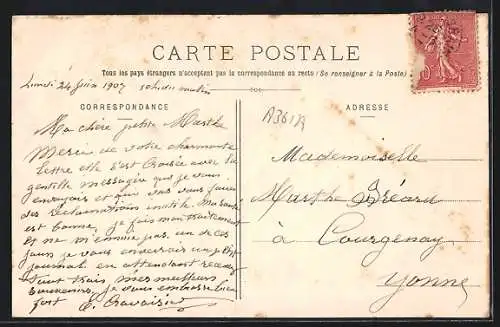 CARTE POSTALE
Tous les pays étrangers n'acceptent pas la correspondance au recto (Se renseigner à la Poste)
Lundi 24 juin 1907
CORRESPONDANCE
ADRESSE
A361A
Ma chère petite Marthe
Merci de votre charmante
lettre elle s'est croisée avec la
gentille messagère que je vous
envoyais et que vous
des réclamations inutile. Ma santé
est bonne, je fais mon traitement
et ne m'ennuie pas, un de ces
jours je vous enverrais un petit
journal en attendant recevez
mes meilleurs
souvenirs, je vous embrasse bien
fort
Mademoiselle
Marthe Bréard
à Courgenay
Yonne